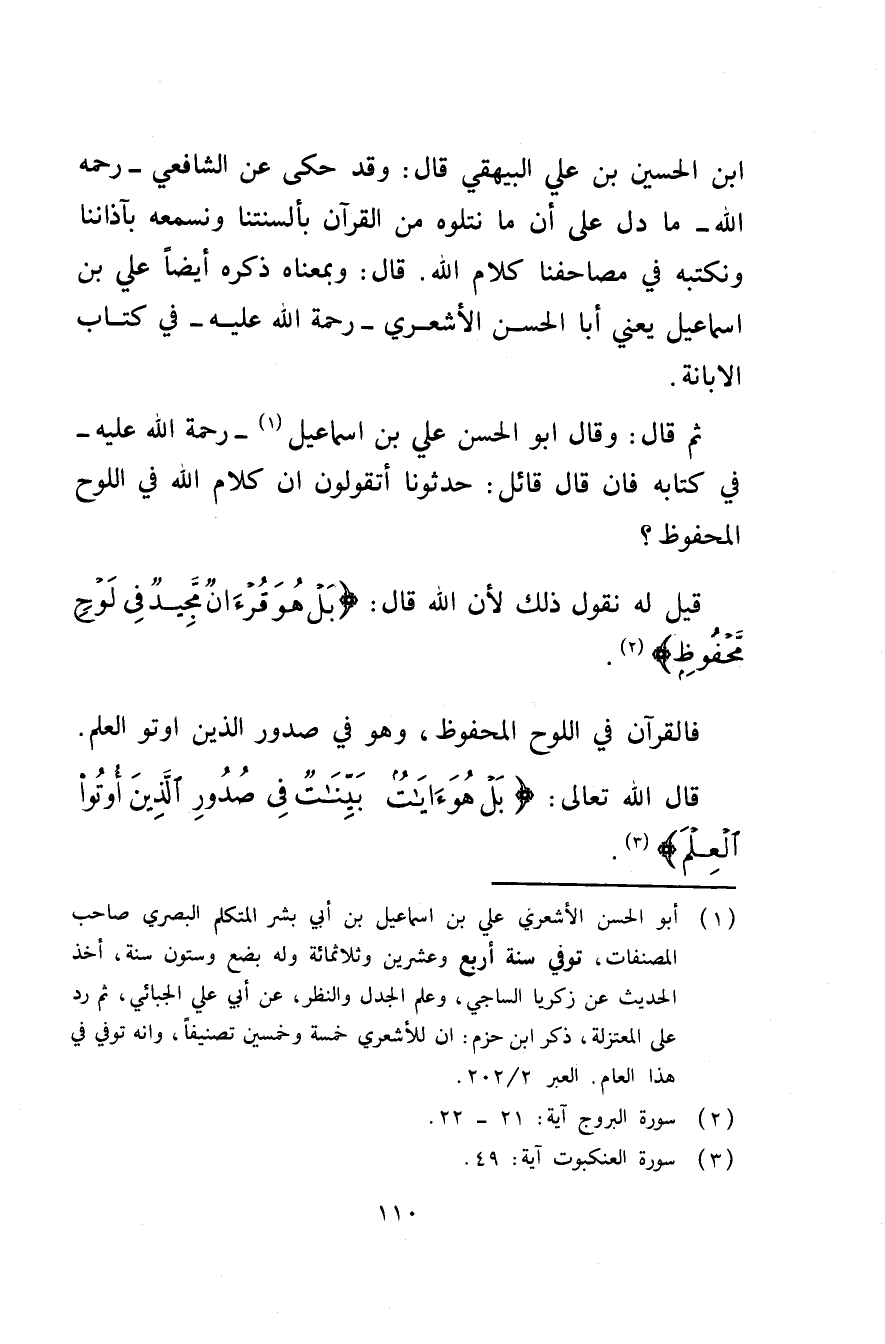 ابن الحسين بن علي البيهقي قال: وقد حكى عن الشافعي ـ رحمه
الله ـ ما دل على أن ما نتلوه من القرآن بألسنتنا ونسمعه بآذاننا
ونكتبه في مصاحفنا كلام الله. قال: وبمعناه ذكره أيضاً علي بن
اسماعيل يعني أبا الحسن الأشعري ـ رحمة الله عليه ـ في كتاب
الابانة.
ثم قال: وقال ابو الحسن علي بن اسماعيل(١) ـ رحمة الله عليه ـ
في كتابه فان قال قائل: حدثونا أتقولون ان كلام الله في اللوح
المحفوظ؟
قيل له نقول ذلك لأن الله قال: ﴿بَلْ هُوَ قُرْءَانٌ مَّجِيدٌ فِى لَوْحٍ
مَّحْفُوظٍ﴾(٢).
فالقرآن في اللوح المحفوظ، وهو في صدور الذين اوتو العلم.
قال الله تعالى: ﴿بَلْ هُوَ ءَايَٰتٌۢ بَيِّنَٰتٌ فِى صُدُورِ ٱلَّذِينَ أُوتُوا۟
ٱلْعِلْمَ﴾(٣).
(١) أبو الحسن الأشعري علي بن اسماعيل بن أبي بشر المتكلم البصري صاحب
المصنفات، توفي سنة أربع وعشرين وثلاثمائة وله بضع وستون سنة، أخذ
الحديث عن زكريا الساجي، وعلم الجدل والنظر، عن أبي علي الجبائي، ثم رد
على المعتزلة، ذكر ابن حزم: ان للأشعري خمسة وخمسين تصنيفاً، وانه توفي في
هذا العام. العبر ٢٠٢/٢.
(٢) سورة البروج آية: ٢١ ـ ٢٢.
(٣) سورة العنكبوت آية: ٤٩.
١١٠